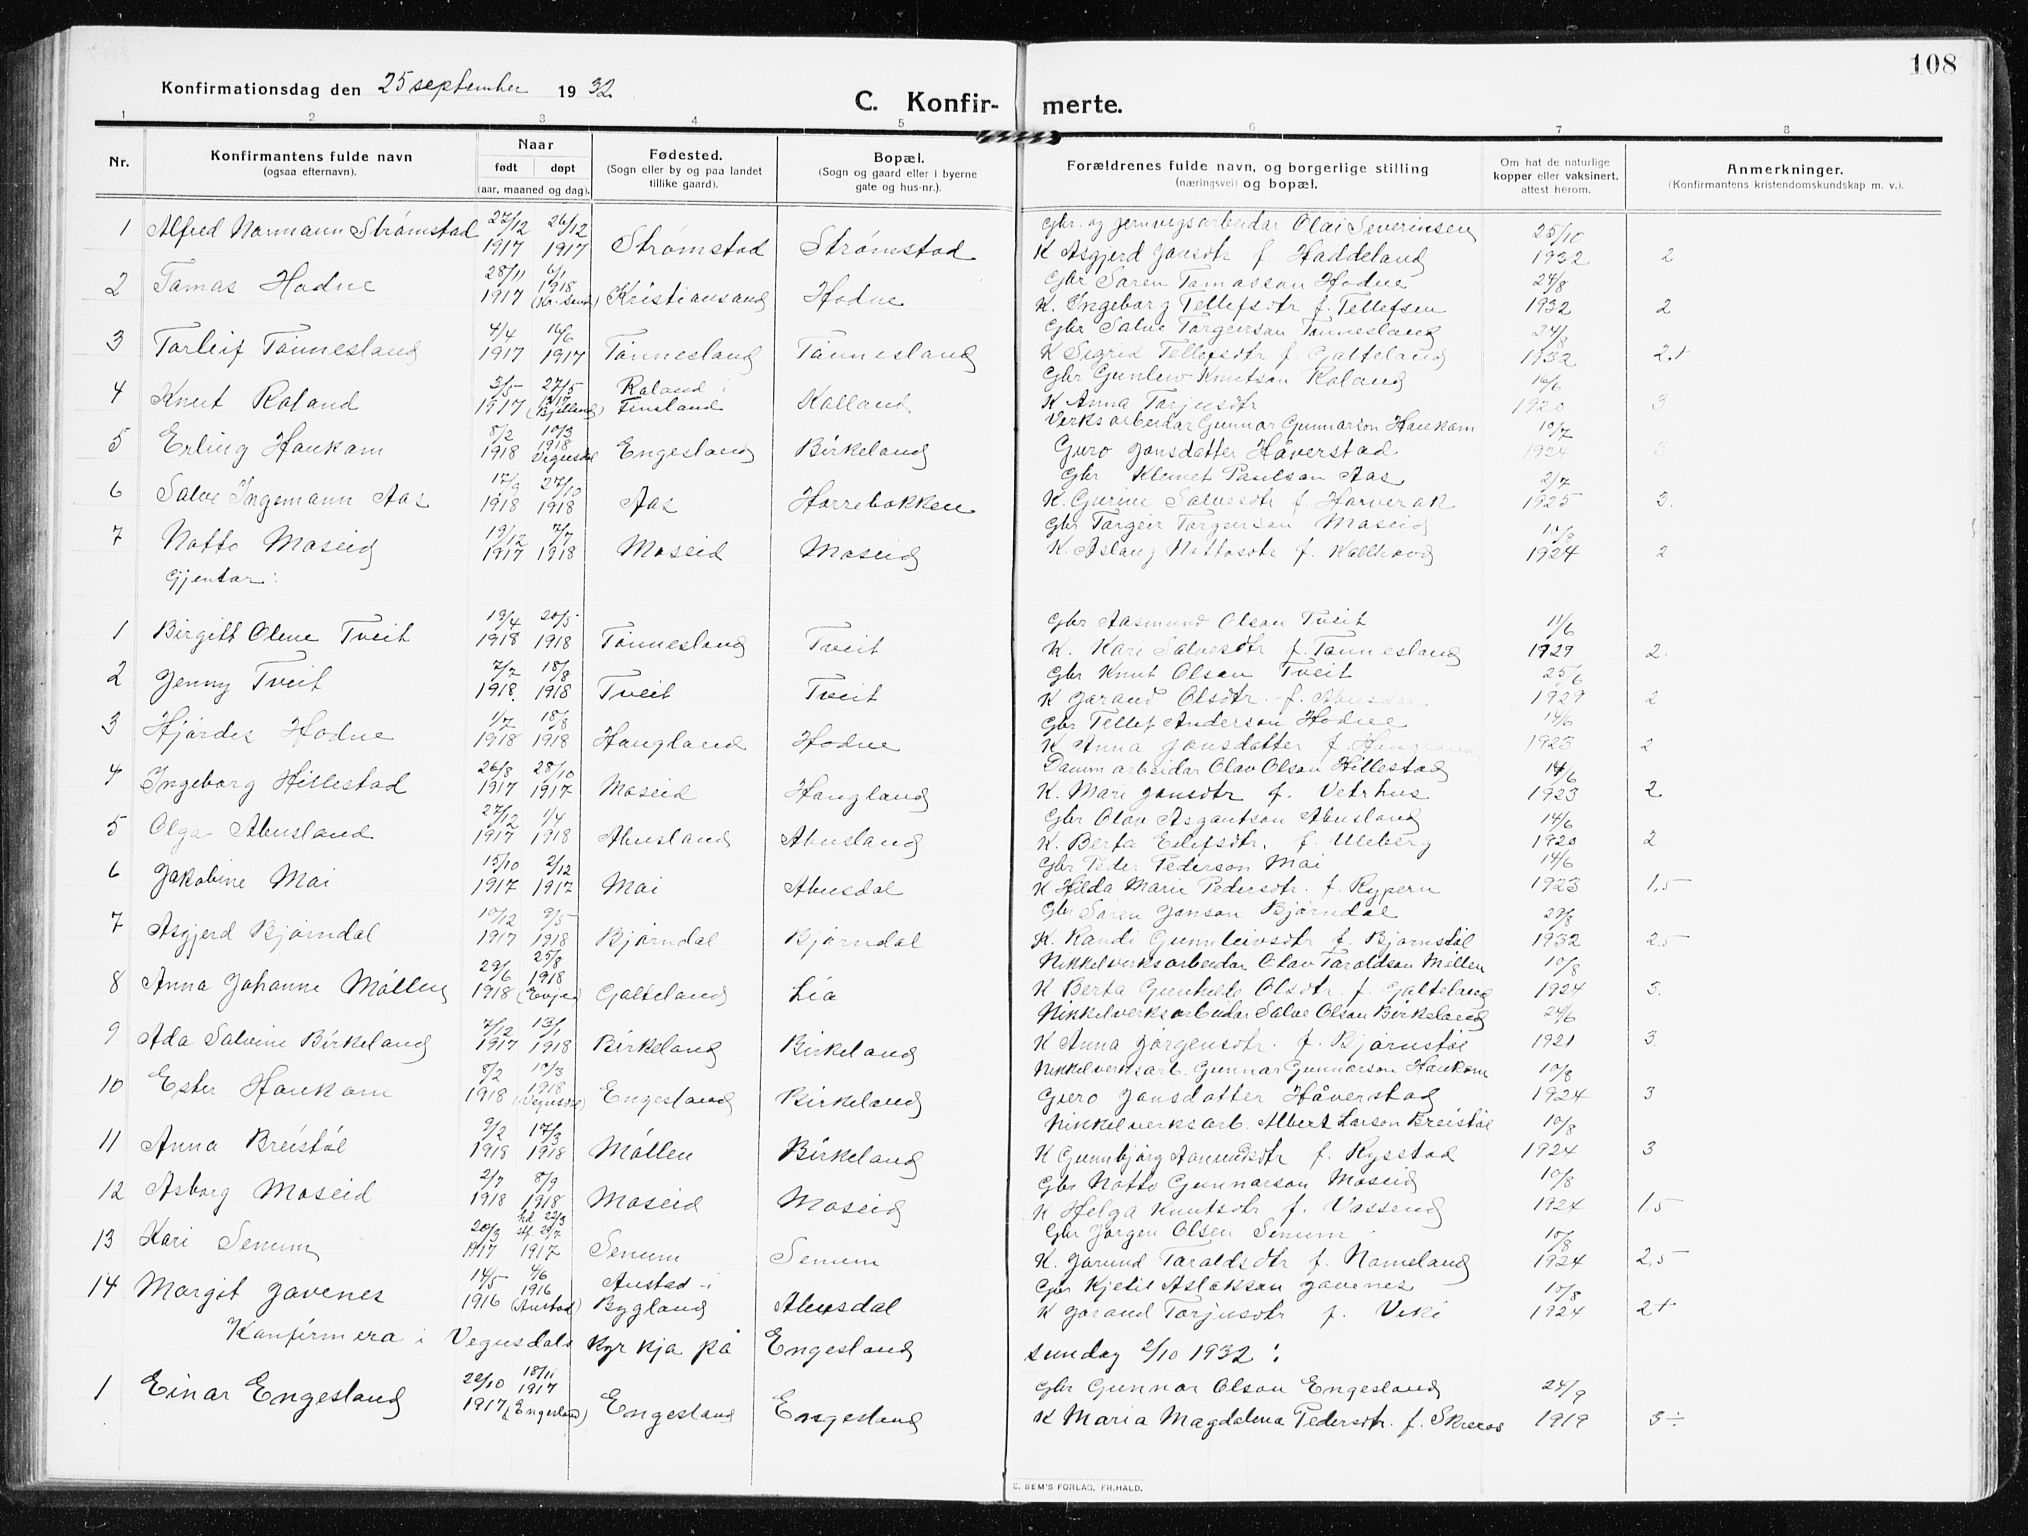 108
Konfirmationsdag den 25 september 1932
C. Konfir- merte.
1 2 3 4 5 6 7 8
Nr. Konfirmantens fulde navn (ogsaa efternavn). Naar født døpt (aar, maaned og dag). Fødested. (Sogn eller by og paa landet tillike gaard). Bopæl. (Sogn og gaard eller i byerne gate og hus-nr.). Forældrenes fulde navn, og borgerlige stilling (næringsvei) og bopæl. Om hat de naturlige kopper eller vaksinert, attest herom. Anmerkninger. (Konfirmantens kristendomskundskap m. v.).
1 Alfred Normann Strømstad 27/12 1917 26/12 1917 Strømstad Strømstad Gbr. og jernvegsarbeidar Olai Severinsen 25/10
K Asgjerd Jonsdtr f. Haddeland 1932 2
2 Tomas Hodne 28/11 1917 6/1 1918 (Kr.sand) Kristiansand Hodne Gbr Søren Tomasson Hodne 24/8
K. Ingeborg Tellefsdtr f. Tellefsen 1932 2
3 Torleif Tønnesland 4/4 1917 16/6 1917 Tønnesland Tønnesland Gbr Salve Torgeirson Tønnesland 24/8
K Sigrid Tellefsdtr f. Galteland 1932 2,+
4 Knut Roland 3/5 1917 27/5 1917 (Bjelland) Roland i Finsland Kolland Gbr Gunleiv Knutson Roland 16/6
K Anna Torjusdtr 1920 3
5 Erling Haukom 8/2 1918 10/3 1918 Vegusdal Engesland Birkeland Verksarbeidar Gunnar Gunnarson Haukom 10/7
Guro Jonsdatter Håverstad 1924 3
6 Salve Ingemann Aas 17/9 1918 27/10 1918 Aas Horrebakken Gbr Klemet Paulson Aas 2/7
K. Gurine Salvesdtr f. Horverak 1925 3.
7 Notto Moseid 19/12 1917 7/7 1918 Moseid Moseid Gbr Torgeir Torgeirson Moseid 10/8
K. Aslaug Nottosdtr f. Kallhovd 1924 2
Gjentar:
1 Birgitt Olene Tveit 19/4 1918 20/5 1918 Tønnesland Tveit Gbr Aasmund Olson Tveit 11/6
K. Kari Salvesdtr f. Tønnesland 1929 2.
2 Jenny Tveit 7/7 1918. 18/8 1918 Tveit Tveit Gbr Knut Olson Tveit 25/6
K Jorand Olsdtr f. Abusdal 1929 2
3 Hjørdis Hodne 1/7 1918 18/8 1918 Haugland Hodne Gbr Tellef Anderson Hodne 14/6
K Anna Jonsdatter f. Haugland 1923 2
4 Ingeborg Hillestad 26/8 1917 28/10 1917 Moseid Haugland Damm arbeidar Olav Olson Hillestad 14/6
K. Mari Jonsdtr f. Vetrhus 1923 2
5 Olga Abusland 27/12 1917 1/4 1918 Abusland Abusland Gbr Olav Asgautson Abusland 14/6
K. Berta Eilefsdtr. f. Uleberg 1920 2
6 Jakobine Moi 15/10 1917 2/12 1917 Moi Abusdal Gbr Peder Pederson Moi 14/6
K Hilda Marie Pedersdtr. f. Rypern 1923 1,5
7 Asgjerd Bjørndal 10/12 1917 9/5 1918 Bjørndal Bjørndal Gbr Søren Jonson Bjørndal 29/8
K. Randi Gunnleivsdtr f. Bjørnstøl 1932 2,5
8 Anna Johanne Møllen 29/6 1918 25/8 1918 (Evje) Galteland Lia Nikkelverksarbeidar Olav Taraldson Møllen 10/8
K Berta Gunhilde Olsdtr. f. Galteland 1924 3.
9 Ada Salvine Birkeland 7/12 1917 13/1 1918 Birkeland Birkeland Nikkelverksarbeidar Salve Olson Birkeland 24/6
K Anna Jørgensdtr. f. Bjørnstøl 1921 3.
10 Ester Haukom 8/2 1918 10/3 1918 (Vegusdal) Engesland Birkeland Nikkelverksarb. Gunnar Gunnarson Haukom 10/8
Guro Jonsdatter Håverstad 1924 3
11 Anna Breistøl 9/2 1918 17/3 1918 Møllen Birkeland Nikkelverksarb. Albert Larson Breistøl 10/8
K Gunnbjørg Aanundsdtr f. Rysstad 1924 3
12 Asborg Moseid 2/7 1918 8/9 1918 Moseid Moseid Gbr Notto Gunnarson Moseid 10/8
K Helga Knutsdtr f. Vassend 1924 1,5
13 Kari Senum 20/3 1917 hd 22/3 stf. 29/7 1917 Senum Senum Gbr Jørgen Olsen Senum 10/8
K. Jorund Taraldsdtr f. Nomeland 1924 2,5
14 Margit Javenes 14/5 1916 4/6 1916 (Austad) Austad i Bygland Abusdal Gbr Kjetil Aslakson Javenes 10/8
K Jorand Torjusdtr f. Viki 1924 2+
Konfirmera i Vegusdals kyrkja på Engesland sundag 2/10 1932:
1 Einar Engesland 22/10 1917 18/11 1917 (Engesland) Engesland Engesland Gbr Gunnar Olson Engesland 24/9
K Maria Magdalena Pedersdtr. f. Skreros 1919 3÷
E. SEM'S FORLAG, FR.HALD.